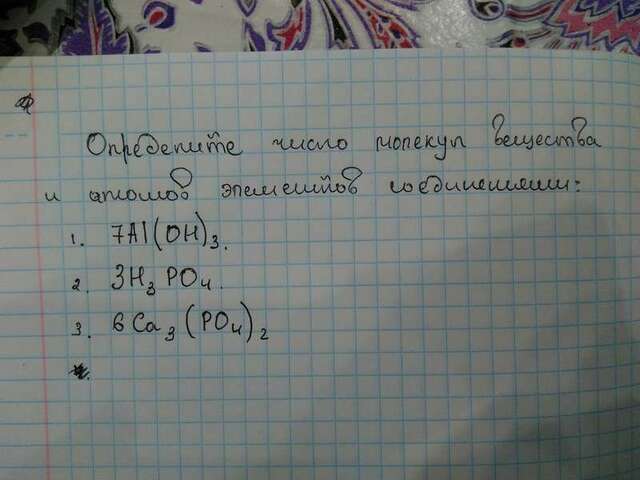 Определите число молекул вещества
и атомов элементов соединениями:
1. 7Al(OH)3.
2. 3H3PO4.
3. 6Ca3(PO4)2